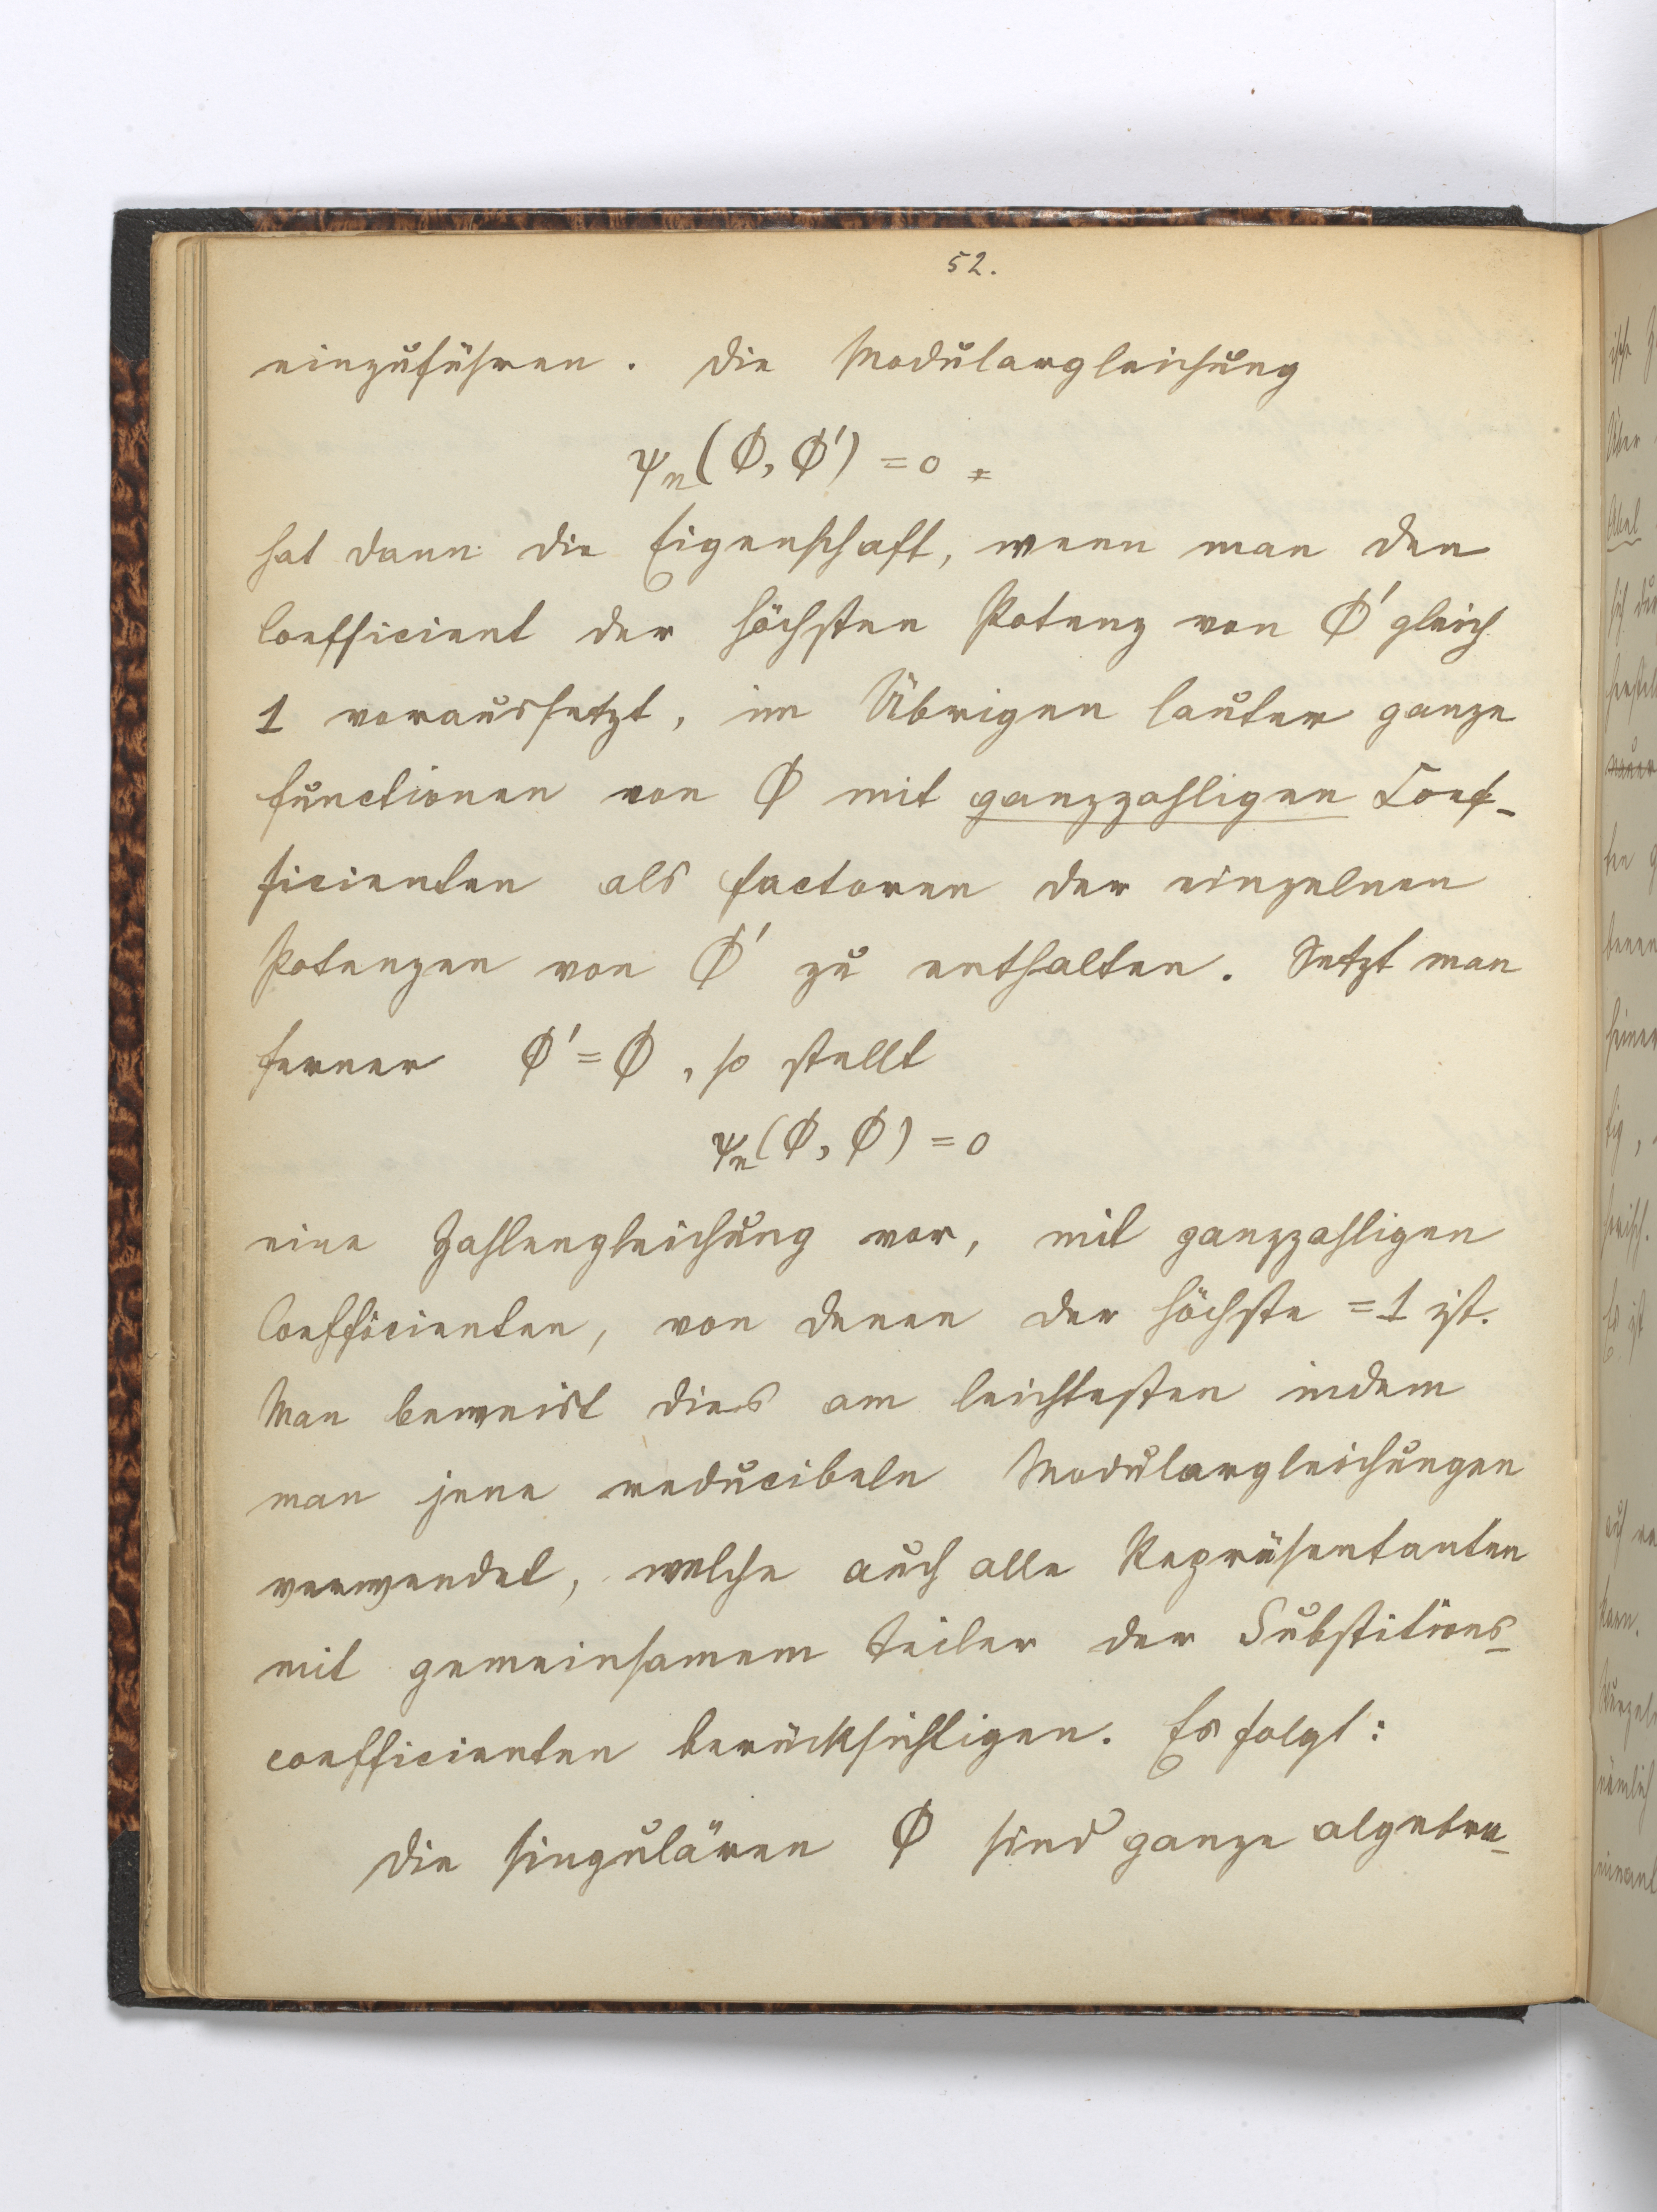 52.
einzuführen. Die Modulargleichung
ψₙ(Φ, Φ') = 0
hat dann die Eigenschaft, wenn man den
Coefficient der höchsten Potenz von Φ' gleich
1 voraussetzt, im Übrigen lauter ganze
Functionen von Φ mit ganzzahligen Coef-
ficienten als Factoren der einzelnen
Potenzen von Φ' zu enthalten. Setzt man
ferner Φ' = Φ, so stellt
ψₙ(Φ, Φ) = 0
eine Zahlengleichung vor, mit ganzzahligen
Coefficienten, von denen der höchste = 1 ist.
Man beweist dies am leichtesten indem
man jene reducibeln Modulargleichungen
verwendet, welche auch alle Repräsentanten
mit gemeinsamem Teiler der Substitions-
coefficienten berücksichtigen. Es folgt:
Die singulären Φ sind ganze algebra-